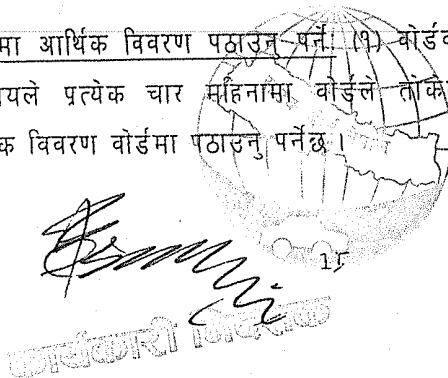 मा आर्थिक विवरण पठाउनु पर्ने: (१) वोर्डव
यले प्रत्येक चार महिनामा वोर्डले तोके
क विवरण वोर्डमा पठाउनु पर्नेछ।
15
कार्यकारी निर्देशक